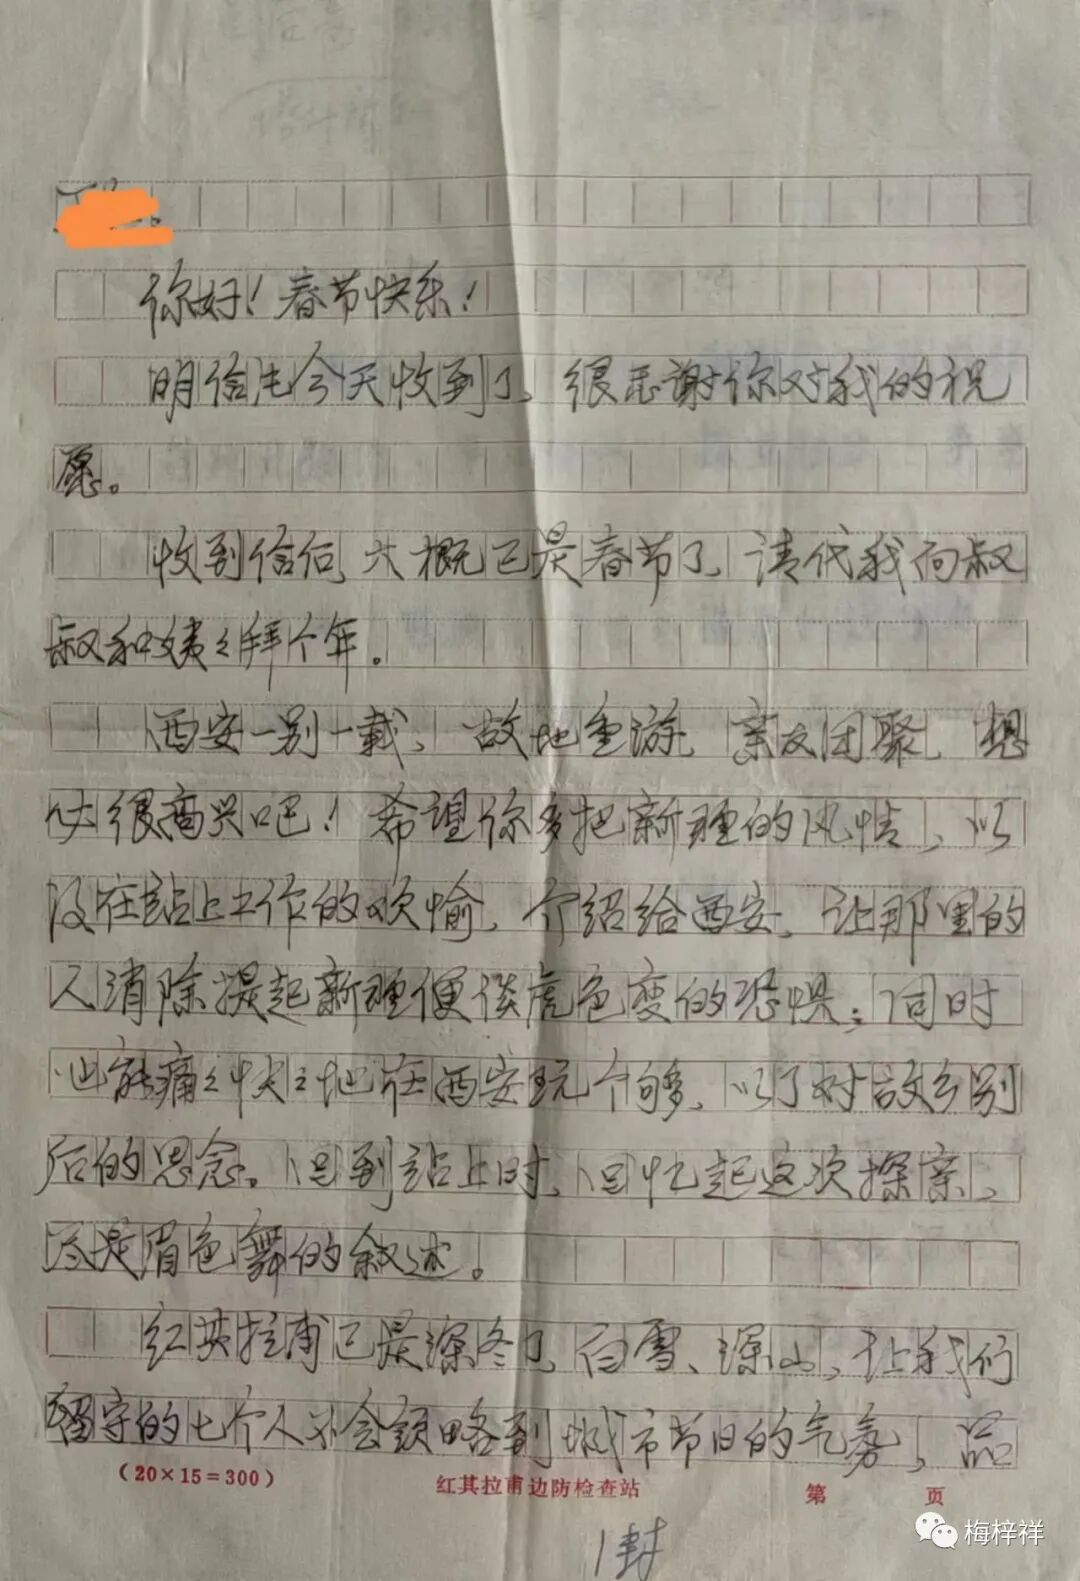 你好！春节快乐！
明信片今天收到了，很感谢你对我的祝
愿。
收到信后，大概已是春节了，请代我向叔
叔和姨姨拜个年。
西安一别一载，故地重游，亲友团聚，想
必很高兴吧！希望你多把新疆的风情，以
及在站上工作的欢愉，介绍给西安，让那里的
人消除提起新疆便谈虎色变的恐惧；同时
也能痛痛快快地在西安玩个够，以了对故乡别
后的思念。回到站上时，回忆起这次探亲，
尽是眉色舞的叙述。
红其拉甫已是深冬了，白雪、深山，让我们
留守的七个人不会领略到城市节日的气氛，品
（20×15=300）
红其拉甫边防检查站
第 页
1封
梅梓祥